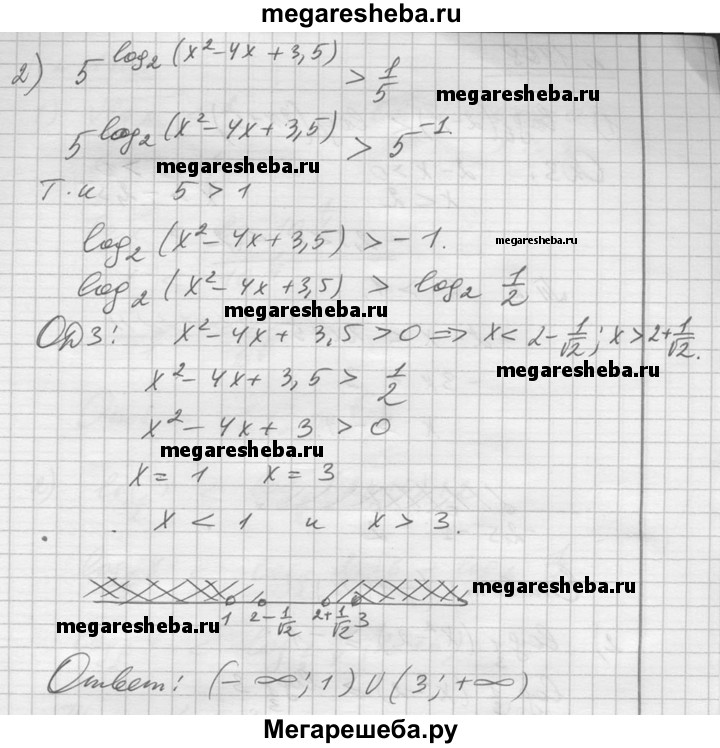 megaresheba.ru
2) 5^log₂(x²-4x+3,5) > 1/5
megaresheba.ru
5^log₂(x²-4x+3,5) > 5^-1.
megaresheba.ru
Т.к 5 > 1
log₂(x²-4x+3,5) > -1. megaresheba.ru
log₂(x²-4x+3,5) > log₂ 1/2
megaresheba.ru
ОДЗ: x²-4x+3,5>0 => x< 2-1/√2; x>2+1/√2.
x²-4x+3,5 > 1/2 megaresheba.ru
x²-4x+3 > 0
megaresheba.ru
x = 1 x = 3
x < 1 и x > 3.
megaresheba.ru
1 2-1/√2 2+1/√2 3
megaresheba.ru
Ответ: (-∞; 1) U (3; +∞)
Мегарешеба.ру